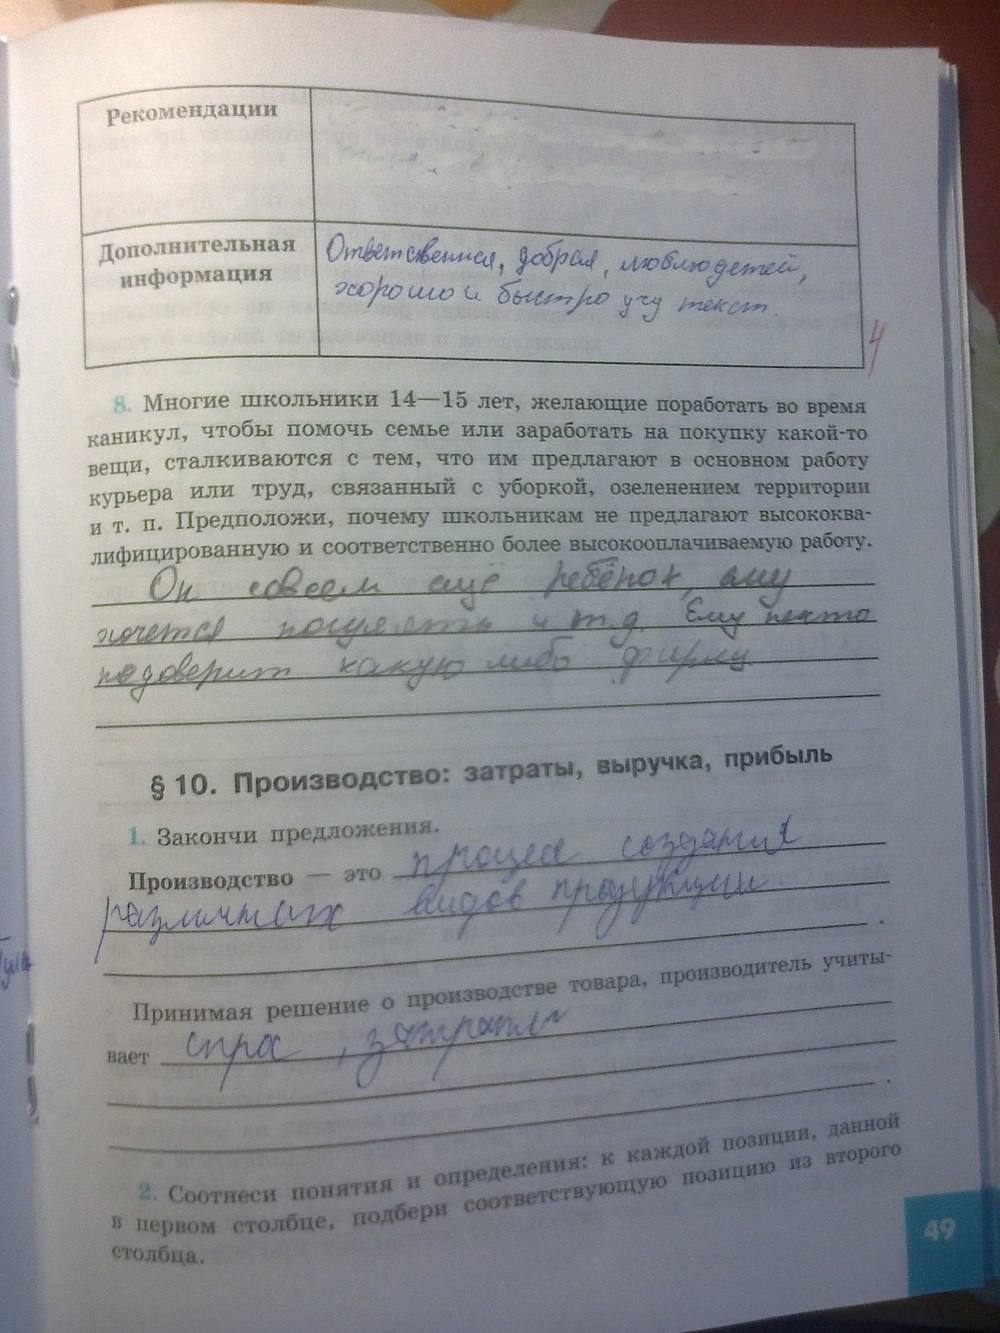 Рекомендации
Дополнительная
информация
Ответственная, добрая, люблю детей,
хорошо и быстро учу текст.
4
8. Многие школьники 14—15 лет, желающие поработать во время
каникул, чтобы помочь семье или заработать на покупку какой-то
вещи, сталкиваются с тем, что им предлагают в основном работу
курьера или труд, связанный с уборкой, озеленением территории
и т. п. Предположи, почему школьникам не предлагают высококва-
лифицированную и соответственно более высокооплачиваемую работу.
Он совсем ещё ребёнок, ему
хочется погулять и т.д. Ему никто
недоверит какую либо фирму
§ 10. Производство: затраты, выручка, прибыль
1. Закончи предложения.
Производство — это процес создания
различных видов продукции
.
Принимая решение о производстве товара, производитель учиты-
вает спрос, затраты
.
2. Соотнеси понятия и определения: к каждой позиции, данной
в первом столбце, подбери соответствующую позицию из второго
столбца.
49